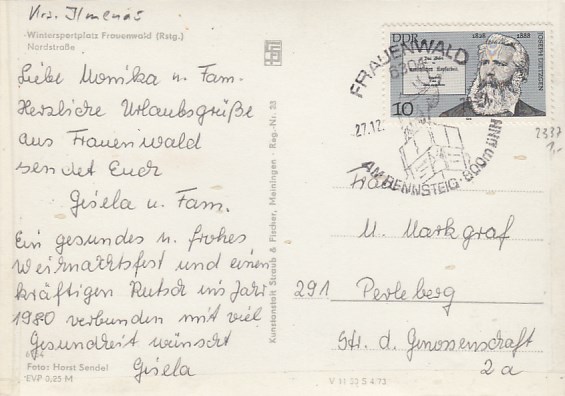 Krs. Ilmenau
Wintersportplatz Frauenwald (Rstg.)
Nordstraße
Liebe Monika u. Fam.
Herzliche Urlaubsgrüße
aus Frauenwald
sendet Euch
Gisela u. Fam.
Ein gesundes u. frohes
Weihnachtsfest und einen
kräftigen Rutsch ins Jahr
1980 verbunden mit viel
Gesundheit wünscht
Gisela
Foto: Horst Sendel
EVP 0,25 M
Kunstanstalt Straub & Fischer, Meiningen · Reg.-Nr. 38
DDR
1828 1888
JOSEPH DIETZGEN
10
FRAUENWALD
6304
27.12.
AM RENNSTEIG · 800 m ü. NN
2337
1,-
Frau
M. Markgraf
291 Perleberg
Str. d. Genossenschaft
2a